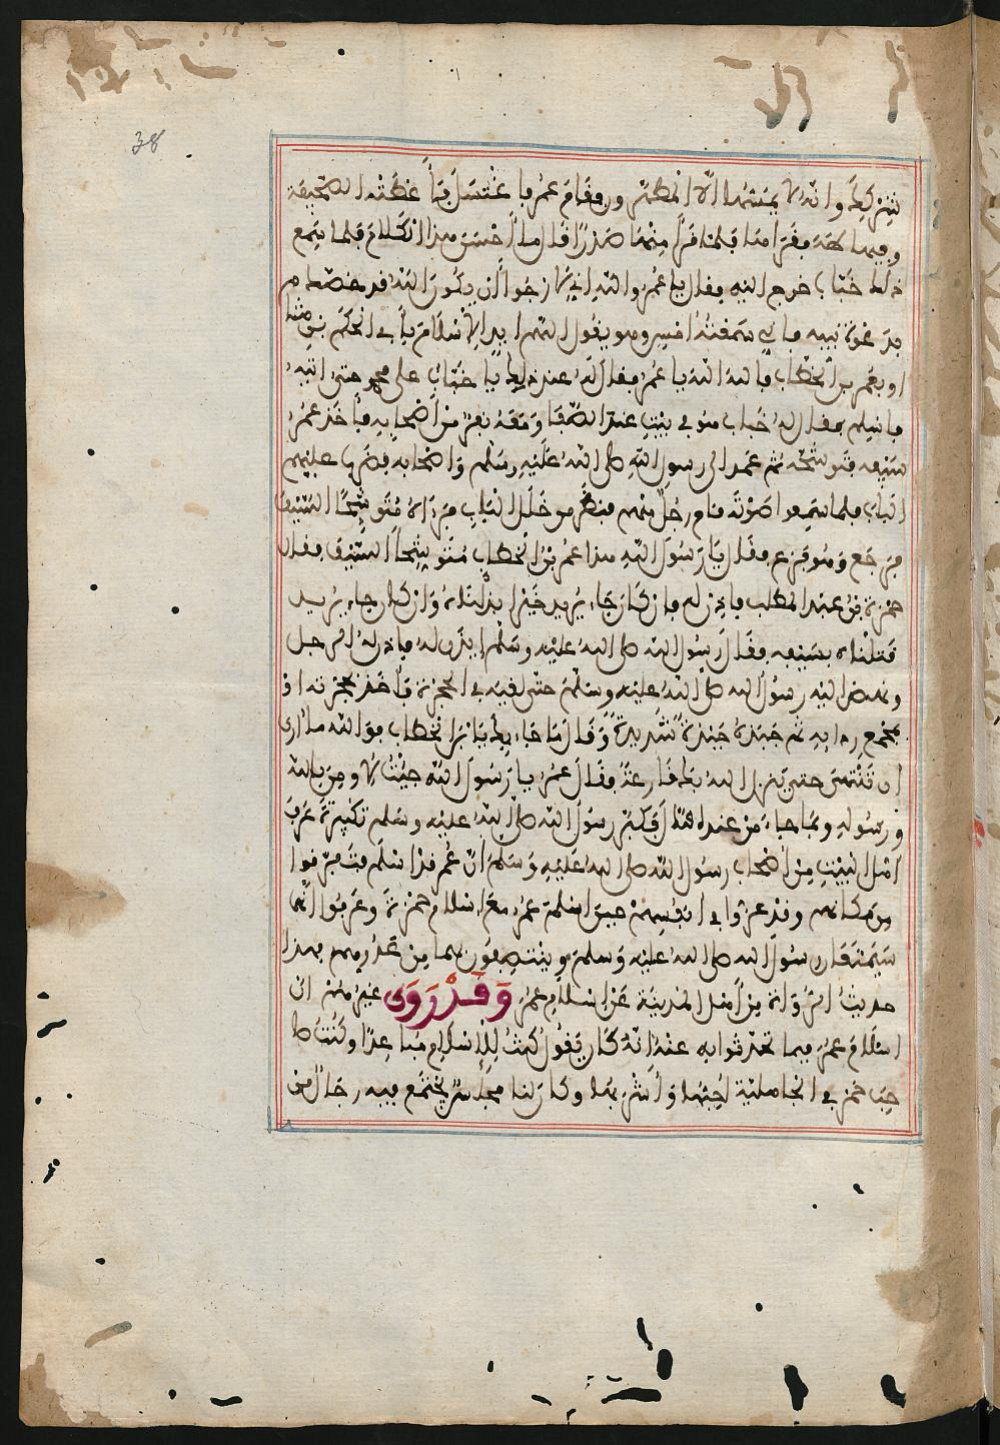 38
شركك وانه لا يمسها الا المطهرون فقام عمر فاغتسل فأعطته الصحيفة
وفيها طه فقرأها فلما قرأ منها صدرا قال ما أحسن هذا الكلام فلما سمع
ذلك خباب خرج اليه فقال يا عمر والله اني لأرجوا أن يكون الله قد خصك
بدعوة نبيه فاني سمعته أمس وهو يقول اللهم ايد الإسلام بأبي الحكم بن هشام
او بعمر بن الخطاب فالله الله يا عمر فقال له عند ذلك يا خباب على محمد حتى اتيه
فأسلم فقال له خباب هو في بيت عند الصفا ومعه نفر من أصحابه فأخذ عمر
سيفه فتوشحه ثم عمد الى رسول الله صلى الله عليه وسلم وأصحابه فضرب عليهم
الباب فلما سمعوا صوته قام رجل منهم فنظر من خلل الباب فرءاه متوشحا السيف
فرجع وهو فزع فقال يا رسول الله هذا عمر بن الخطاب متوشحا السيف فقال
حمزة بن عبد المطلب فأذن له فان كان جاء يريد خيرا بذلناه وان كان جاء يريد
قتلناه بسيفه فقال رسول الله صلى الله عليه وسلم ايذن له فأذن له الرجل
ونهض اليه رسول الله صلى الله عليه وسلم حتى لقيه في الحجرة فأخذ بحجزته او
بمجمع ردايه ثم جبذه جبذة شديدة وقال ما جاء بك يا بن الخطاب فوالله ما أرى
ان تنتهي حتى ينزل الله بك قارعة فقال عمر يا رسول الله جئت لأومن بالله
ورسوله وبما جاء من عند الله قال فكبر رسول الله صلى الله عليه وسلم تكبيرة عرف
أهل البيت من أصحاب رسول الله صلى الله عليه وسلم ان عمر قد اسلم فتفرقوا
من مكانهم وقد عزوا في انفسهم حين اسلم عمر مع اسلام حمزة وعرفوا انهما
سيمنعان رسول الله صلى الله عليه وسلم وينتصفون بهما من عدوهم فهذا
حديث الرواة من أهل المدينة عن اسلام عمر وقد روى غيرهم ان
اسلام عمر فيما تحدثوا به عنه انه كان يقول كنت للإسلام مباعدا وكنت
صاحب خمر في الجاهلية أحبها وأشربها وكان لنا مجلس يجتمع فيه رجال من